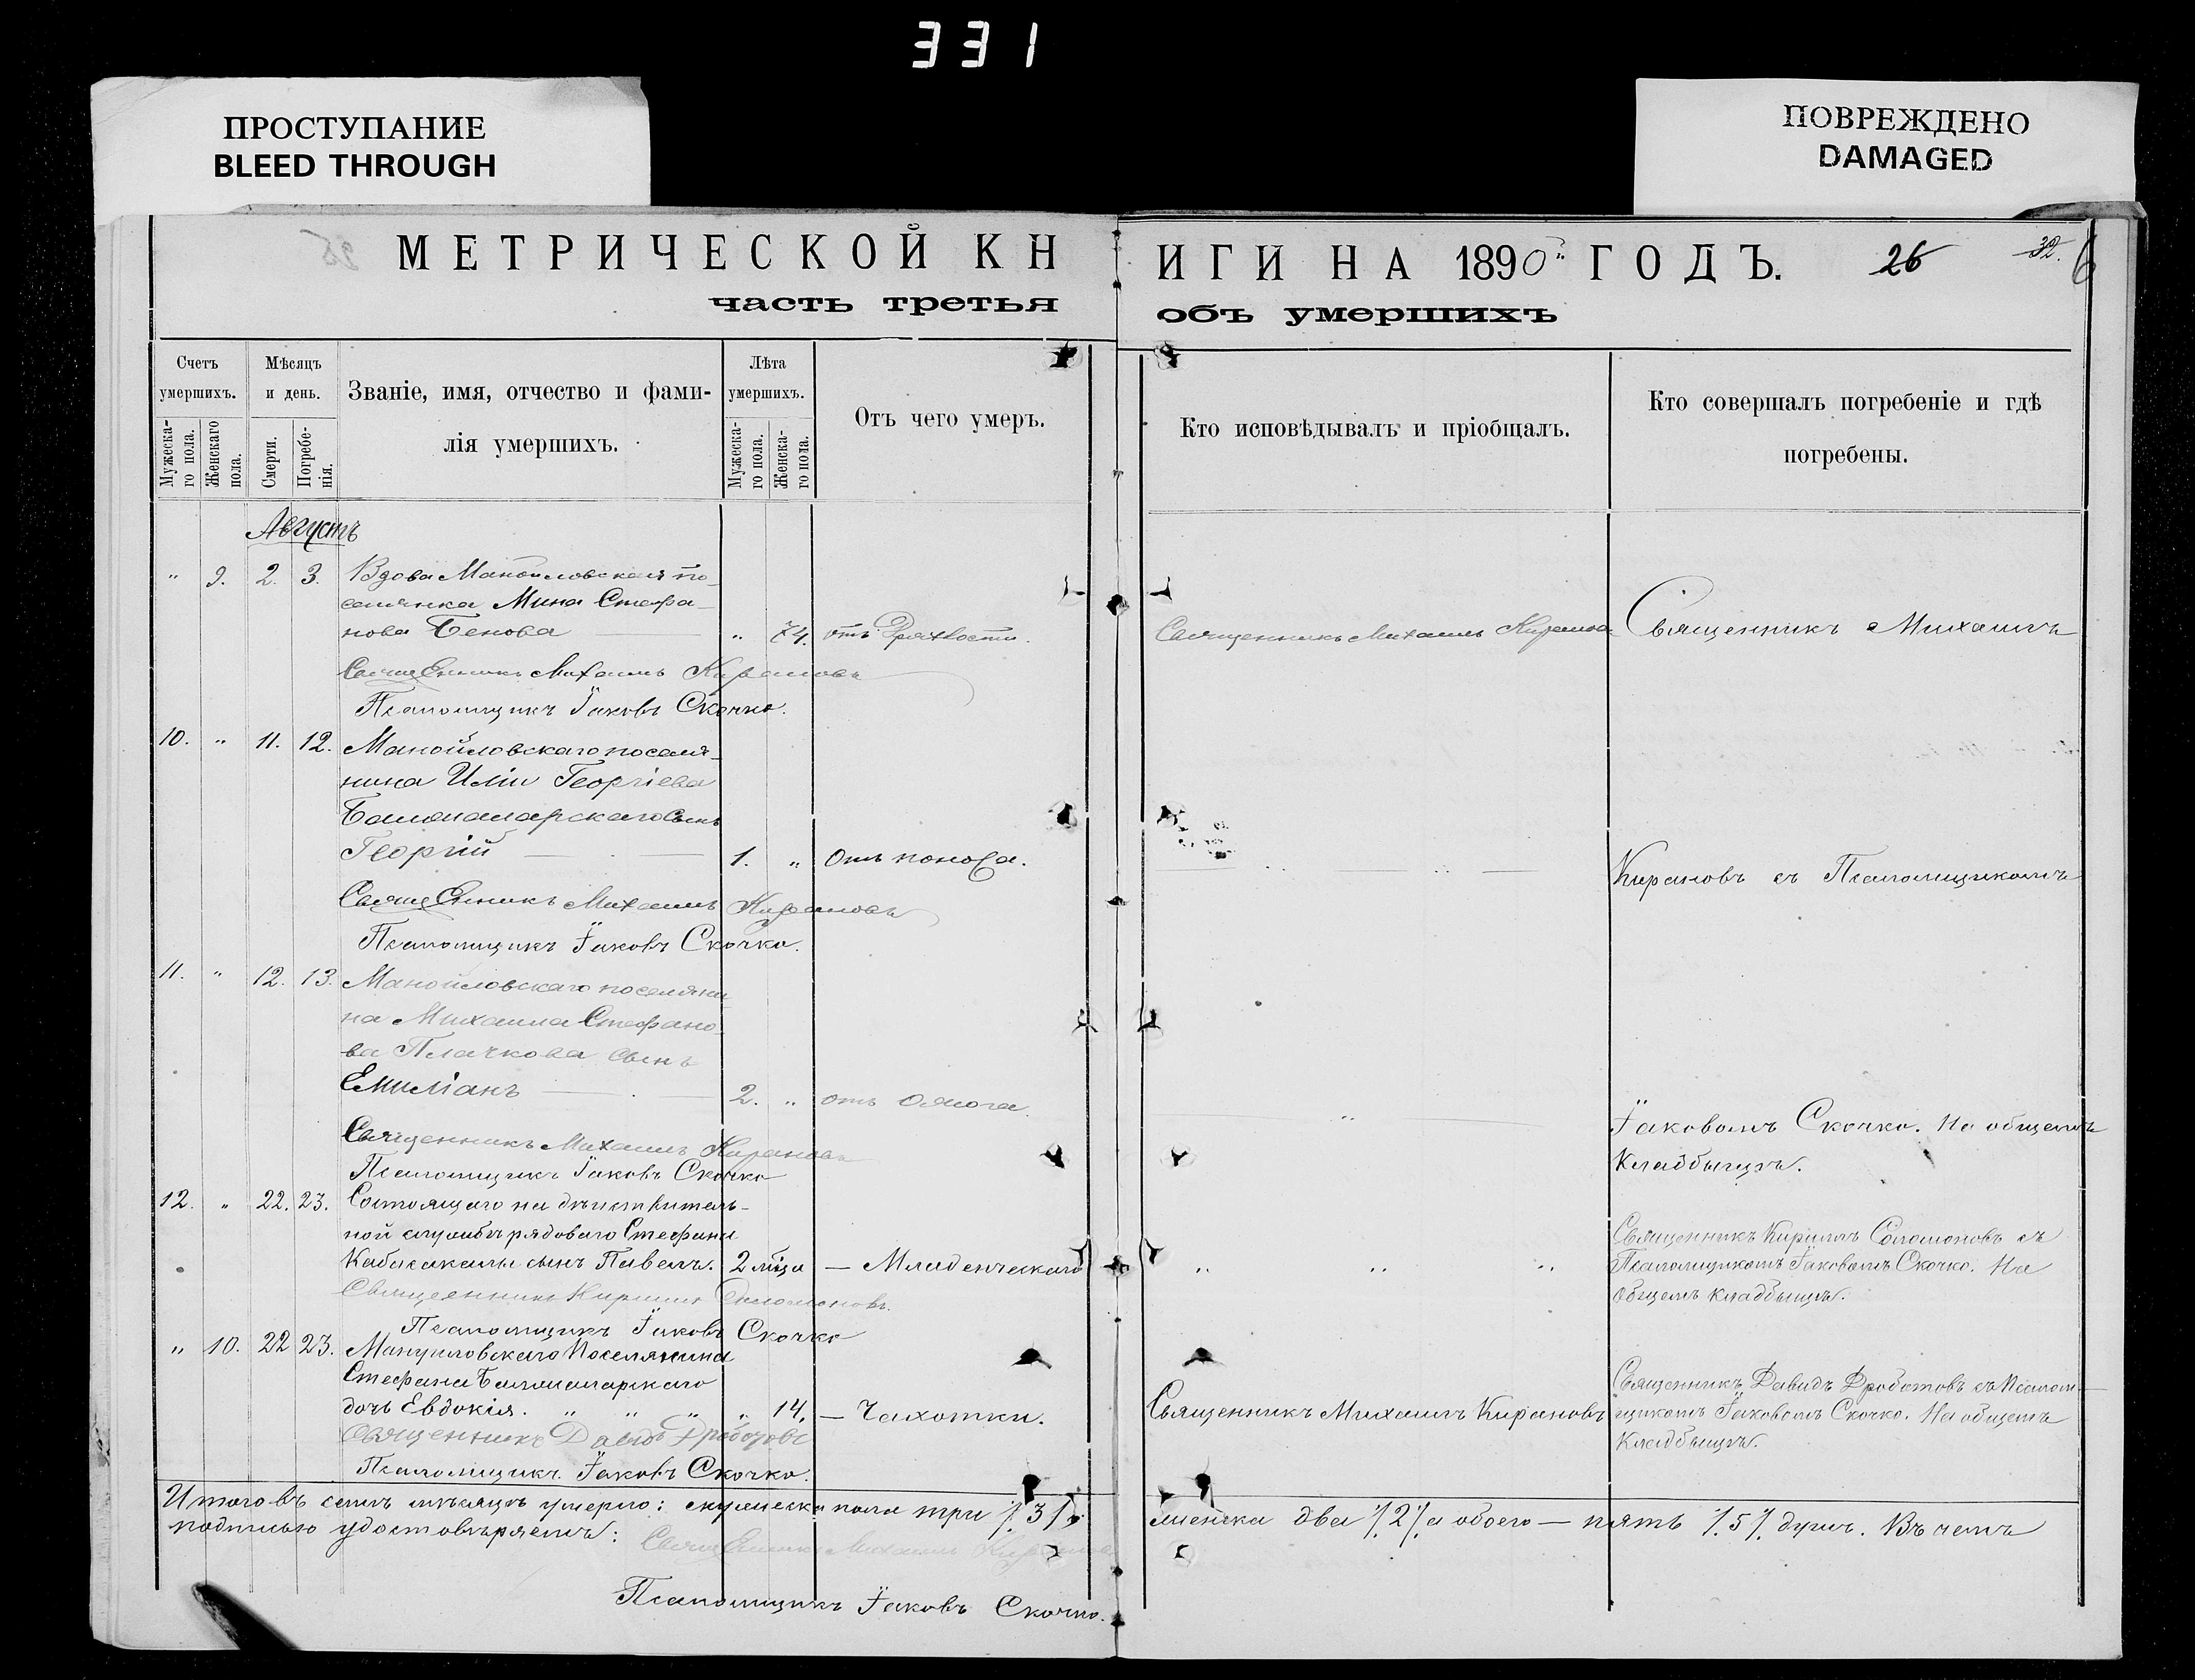 331
ПРОСТУПАНИЕ
BLEED THROUGH
ПОВРЕЖДЕНО
DAMAGED
МЕТРИЧЕСКОЙ КН
часть третья
ИГИ НА 1890 ГОДЪ.
26
32.
6
объ умершихъ
Счетъ умершихъ.
Мужескаго пола.
Женскаго пола.
Мѣсяцъ и день.
Смерти.
Погребенія.
Званіе, имя, отчество и фами-
лія умершихъ.
Лѣта умершихъ.
Мужескаго пола.
Женскаго пола.
Отъ чего умеръ.
Кто исповѣдывалъ и пріобщалъ.
Кто совершалъ погребеніе и гдѣ
погребены.
Августъ
" 9. 2. 3. Вдова Манойловская по-
селянка Мина Стефа-
нова Бенова " 74. отъ Дряхлости. Священникъ Михаилъ Кирановъ Священникъ Михаилъ
Священникъ Михаилъ Кирановъ
Псаломщикъ Іаковъ Скочко.
10. " 11. 12. Манойловскаго поселя-
нина Иліи Георгіева
сынъ
Георгій 1. " Отъ поноса. Кирановъ съ Псаломщикомъ
Священникъ Михаилъ Кирановъ
Псаломщикъ Іаковъ Скочко.
11. " 12. 13. Манойловскаго поселяни
на Михаила Стефано-
ва Плачкова сынъ
Емиліанъ 2. " отъ " Іаковомъ Скочко. На общемъ
Кладбищѣ.
Священникъ Михаилъ Кирановъ
Псаломщикъ Іаковъ Скочко
12. " 22. 23. Состоящаго на дѣйствитель-
ной службѣ рядоваго Стефана
сынъ Павелъ. 2 мѣца — Младенческаго " " "
Священникъ Кириллъ Соломоновъ съ
Псаломщикомъ Іаковомъ Скочко. На
общемъ кладбищѣ.
Священникъ Кириллъ Соломоновъ.
Псаломщикъ Іаковъ Скочко
" 10. 22 23. Мануиловскаго Поселянина
Стефана
дочь Евдокія. " " " " 14. — Чахотки. Священникъ Михаилъ Кирановъ
Священникъ Давидъ Дроботовъ съ Псалом-
щикомъ Іаковомъ Скочко. На общемъ
Кладбищѣ.
Священникъ Давидъ Дроботовъ
Псаломщикъ Іаковъ Скочко.
Итого въ семъ мѣсяцѣ умерло: мужеска пола три /.3/. женска два /.2/. а обоего — пять /.5/. душъ. Въ чемъ
подписью удостовѣряемъ:
Священникъ Михаилъ Кирановъ
Псаломщикъ Іаковъ Скочко.